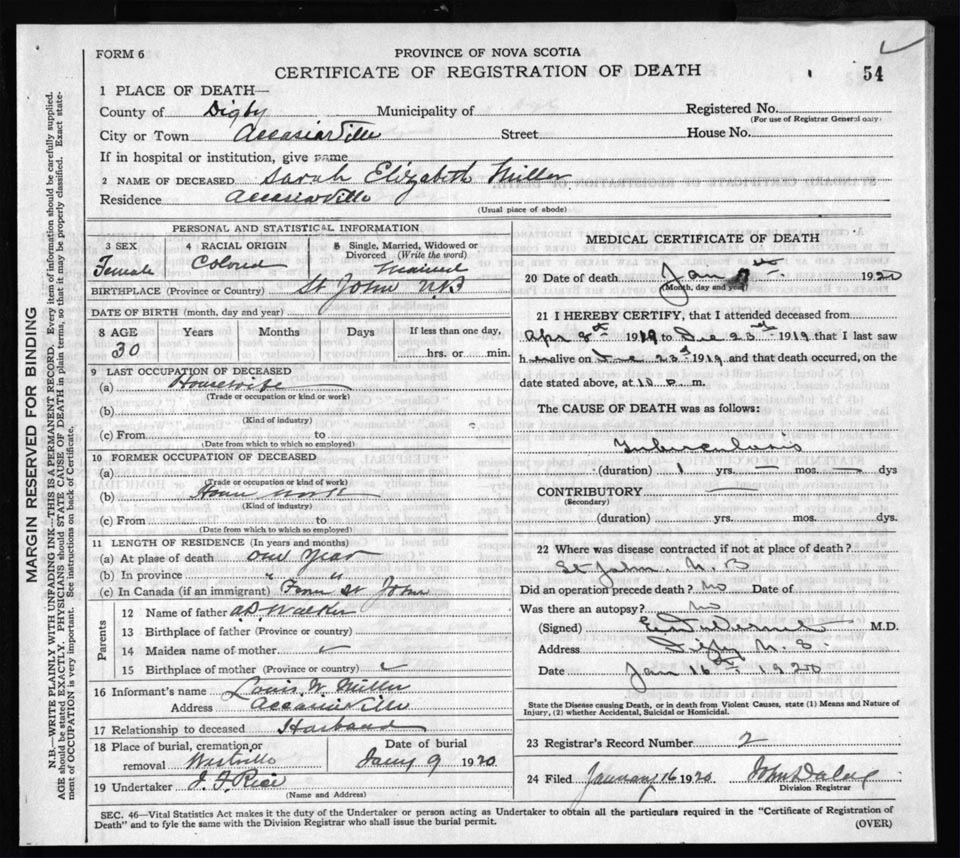 FORM 6
PROVINCE OF NOVA SCOTIA
CERTIFICATE OF REGISTRATION OF DEATH
54
1 PLACE OF DEATH—
County of Digby Municipality of Registered No.
(For use of Registrar General only)
City or Town Accasiaville Street House No.
If in hospital or institution, give name
2 NAME OF DECEASED Sarah Elizabeth Miller
Residence Accasiaville
(Usual place of abode)
PERSONAL AND STATISTICAL INFORMATION
3 SEX 4 RACIAL ORIGIN 5 Single, Married, Widowed or Divorced (Write the word)
Female Colored Married
BIRTHPLACE (Province or Country) St John N.B
DATE OF BIRTH (month, day and year)
8 AGE Years Months Days If less than one day,
30 hrs. or min.
9 LAST OCCUPATION OF DECEASED
(a) Housewife
(Trade or occupation or kind or work)
(b)
(Kind of industry)
(c) From to
(Date from which to which so employed)
10 FORMER OCCUPATION OF DECEASED
(a)
(Trade or occupation or kind of work)
(b) House work
(Kind of industry)
(c) From to
(Date from which to which so employed)
11 LENGTH OF RESIDENCE (In years and months)
(a) At place of death one year
(b) In province " "
(c) In Canada (if an immigrant) From St John
Parents
12 Name of father A.D. Walker
13 Birthplace of father (Province or country)
14 Maiden name of mother ✓
15 Birthplace of mother (Province or country) ✓
16 Informant's name Louis W. Miller
Address Accasiaville
17 Relationship to deceased Husband
18 Place of burial, cremation or removal Date of burial
Jany 9 1920
19 Undertaker J. F. Rice
(Name and Address)
MEDICAL CERTIFICATE OF DEATH
20 Date of death Jan 7th 1920
(Month, day and year)
21 I HEREBY CERTIFY, that I attended deceased from
Apr 8th 1919 to Dec 23rd 1919 that I last saw
her alive on Dec 23rd 1919 and that death occurred, on the
date stated above, at 10 P. m.
The CAUSE OF DEATH was as follows:
Tuberculosis
(duration) 1 yrs. — mos. — dys
CONTRIBUTORY —
(Secondary)
(duration) yrs. mos. dys.
22 Where was disease contracted if not at place of death?
St John N. B
Did an operation precede death? No Date of
Was there an autopsy? No
(Signed) M.D.
Address Digby N. S.
Date Jan 16th 1920
State the Disease causing Death, or in death from Violent Causes, state (1) Means and Nature of
Injury, (2) whether Accidental, Suicidal or Homicidal.
23 Registrar's Record Number 2
24 Filed January 16 1920 John Daley
Division Registrar
SEC. 46—Vital Statistics Act makes it the duty of the Undertaker or person acting as Undertaker to obtain all the particulars required in the "Certificate of Registration of
Death" and to fyle the same with the Division Registrar who shall issue the burial permit.
(OVER)
MARGIN RESERVED FOR BINDING
N.B.—WRITE PLAINLY WITH UNFADING INK—THIS IS A PERMANENT RECORD. Every item of information should be carefully supplied.
AGE should be stated EXACTLY. PHYSICIANS should STATE CAUSE OF DEATH in plain terms, so that it may be properly classified. Exact state-
ment of OCCUPATION is very important. See instructions on back of Certificate.